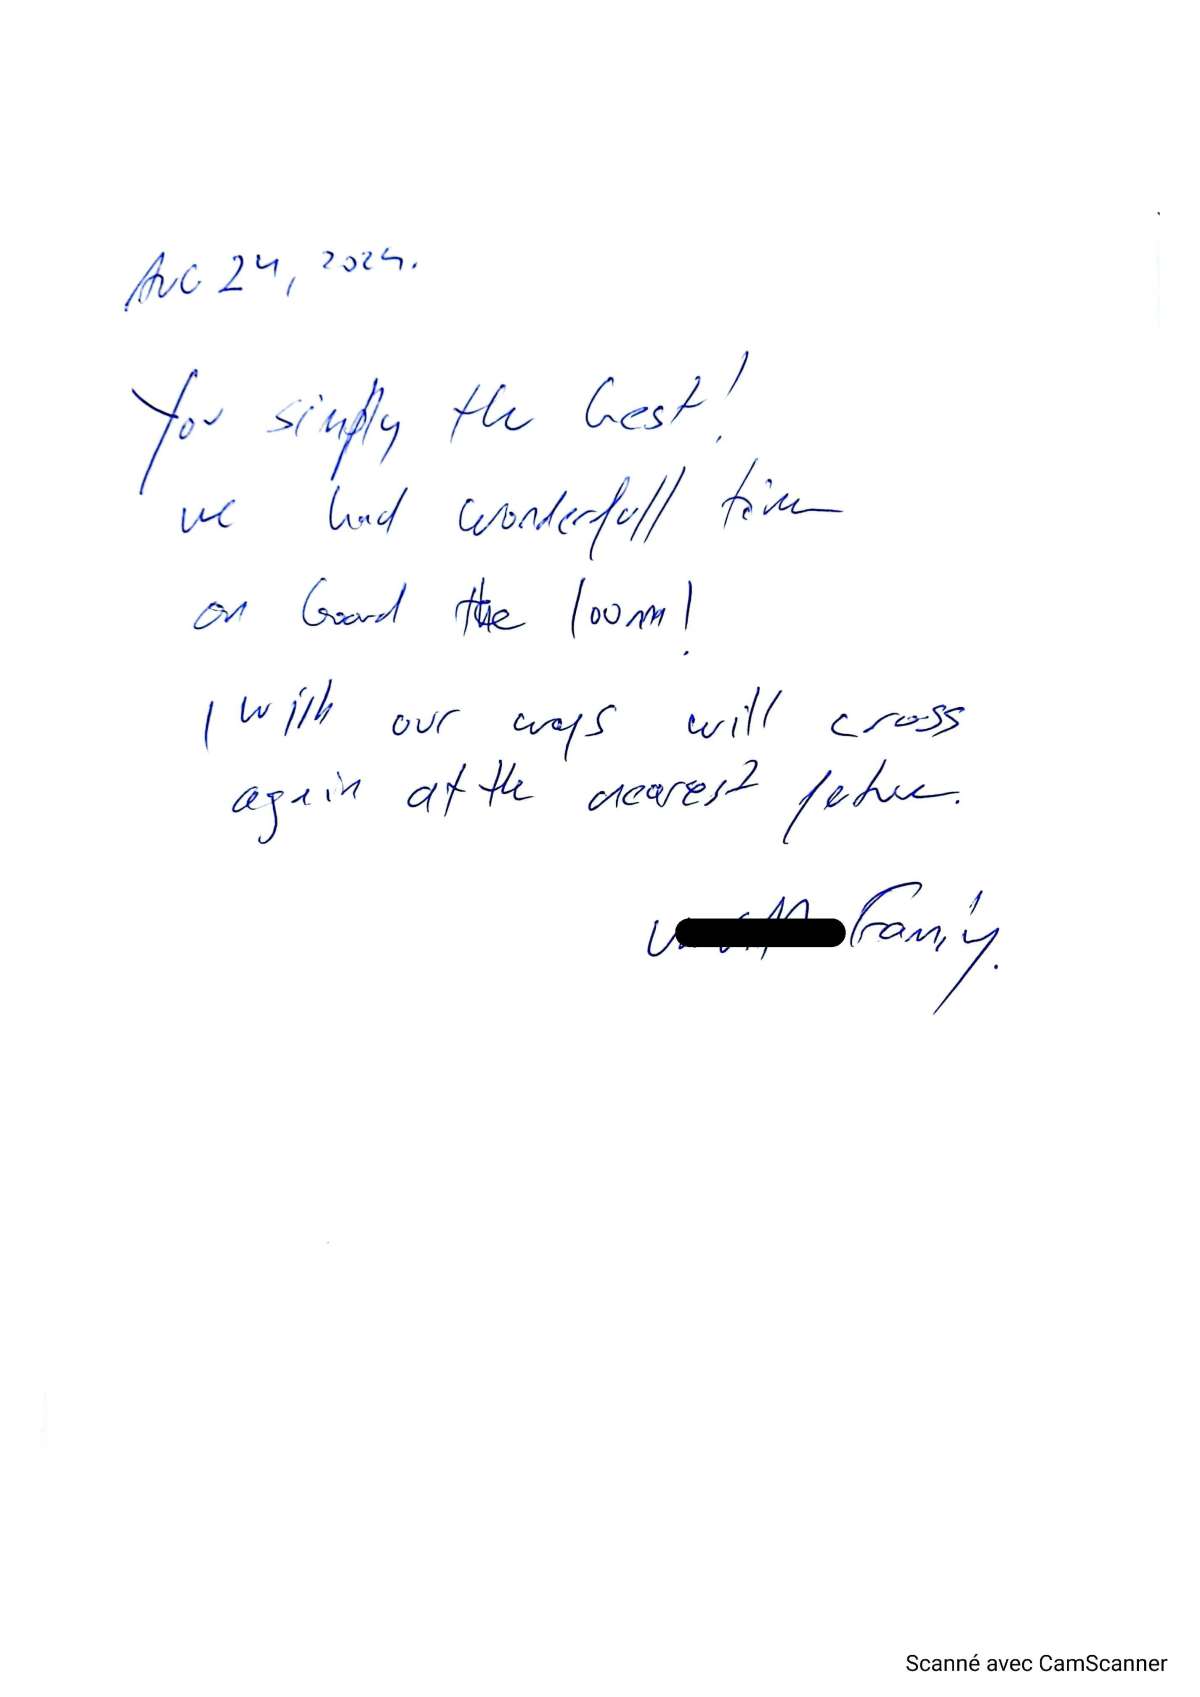 Aug 24, 2024.
You simply the best!
we had wonderfull time
on board the loum!
I wish our ways will cross
again at the nearest future.
Family.
Scanné avec CamScanner